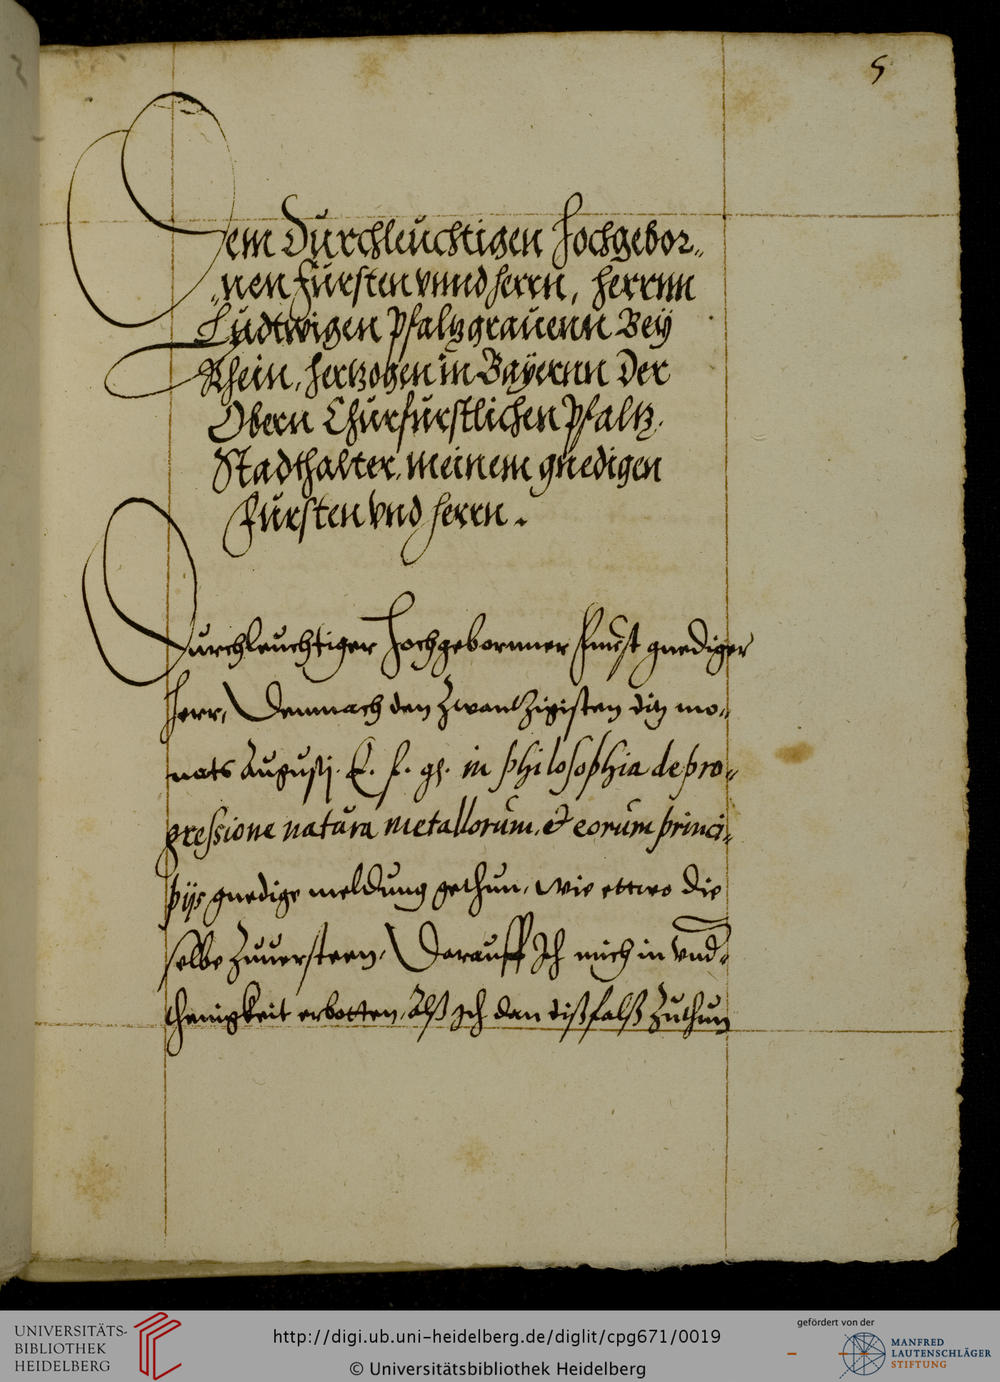 5
Dem Durchleuchtigen Hochgebor„
„nen Fürsten vnnd Herrn, Herrnn
Ludtwigen Pfaltzgrauenn Bey
Rhein, Hertzogen in Bayernn Der
Obern Churfürstlichen Pfaltz
Stadthalter, meinem gnedigen
Fürsten vnd Herrn.
Durchleuchtiger Hochgebornner Fürst gnediger
Herr, Demnach den Zwantzigisten diß mo„
nats Augustj. E. f. g. in philosophia de pro„
gressione natura metallorum, et eorum princi„
pijs gnedige meldung gethun, wie ettwo die
selbe Zuuersteen, Darauff Ich mich in vnd„
thenigkeit erbotten, Alß Ich dan dißfalß Zuthun
UNIVERSITÄTS-
BIBLIOTHEK
HEIDELBERG
http://digi.ub.uni-heidelberg.de/diglit/cpg671/0019
© Universitätsbibliothek Heidelberg
gefördert von der
MANFRED
LAUTENSCHLÄGER
STIFTUNG